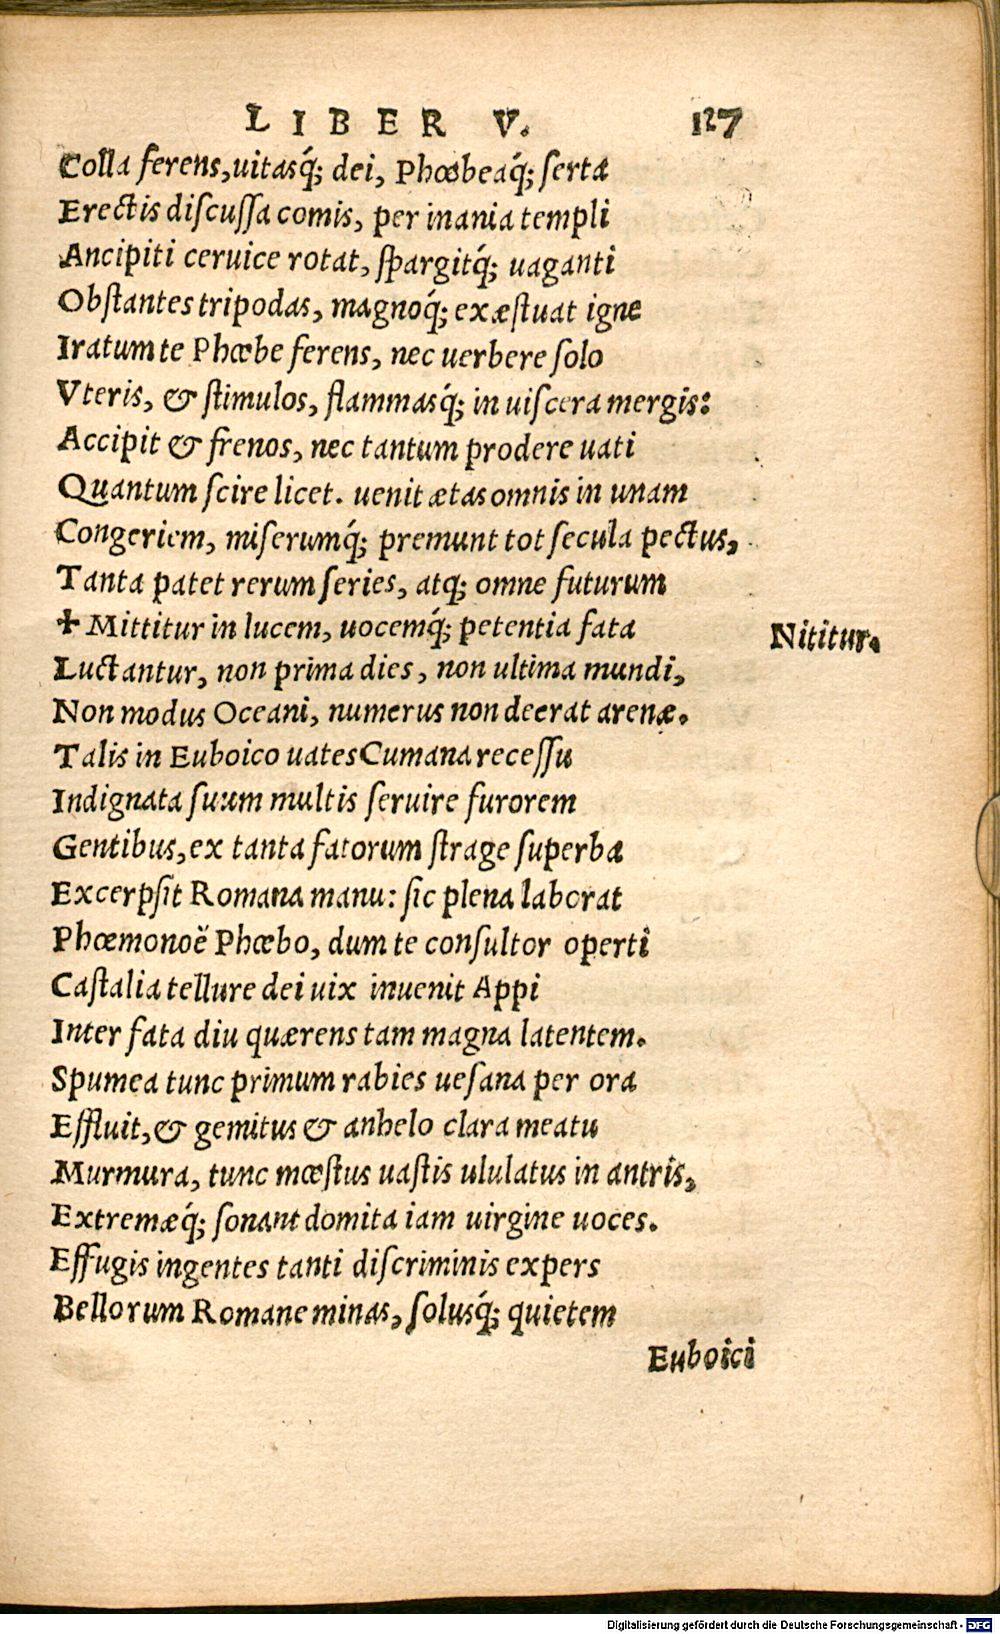 LIBER V. 127
Colla ferens, uitasq́; dei, Phœbeaq́; serta
Erectis discussa comis, per inania templi
Ancipiti ceruice rotat, spargitq́; uaganti
Obstantes tripodas, magnoq́; exæstuat igne
Iratum te Phœbe ferens, nec uerbere solo
Vteris, & stimulos, flammasq́; in uiscera mergis:
Accipit & frenos, nec tantum prodere uati
Quantum scire licet. uenit ætas omnis in unam
Congeriem, miserumq́; premunt tot secula pectus,
Tanta patet rerum series, atq; omne futurum
✢ Mittitur in lucem, uocemq́; petentia fata
Nititur.
Luctantur, non prima dies, non ultima mundi,
Non modus Oceani, numerus non deerat arenæ.
Talis in Euboico uates Cumana recessu
Indignata suum multis seruire furorem
Gentibus, ex tanta fatorum strage superba
Excerpsit Romana manu: sic plena laborat
Phœmonoë Phœbo, dum te consultor operti
Castalia tellure dei uix inuenit Appi
Inter fata diu quærens tam magna latentem.
Spumea tunc primum rabies uesana per ora
Effluit, & gemitus & anhelo clara meatu
Murmura, tunc mœstus uastis ululatus in antris,
Extremæq́; sonant domita iam uirgine uoces.
Effugis ingentes tanti discriminis expers
Bellorum Romane minas, solusq́; quietem
Euboici
Digitalisierung gefördert durch die Deutsche Forschungsgemeinschaft - DFG